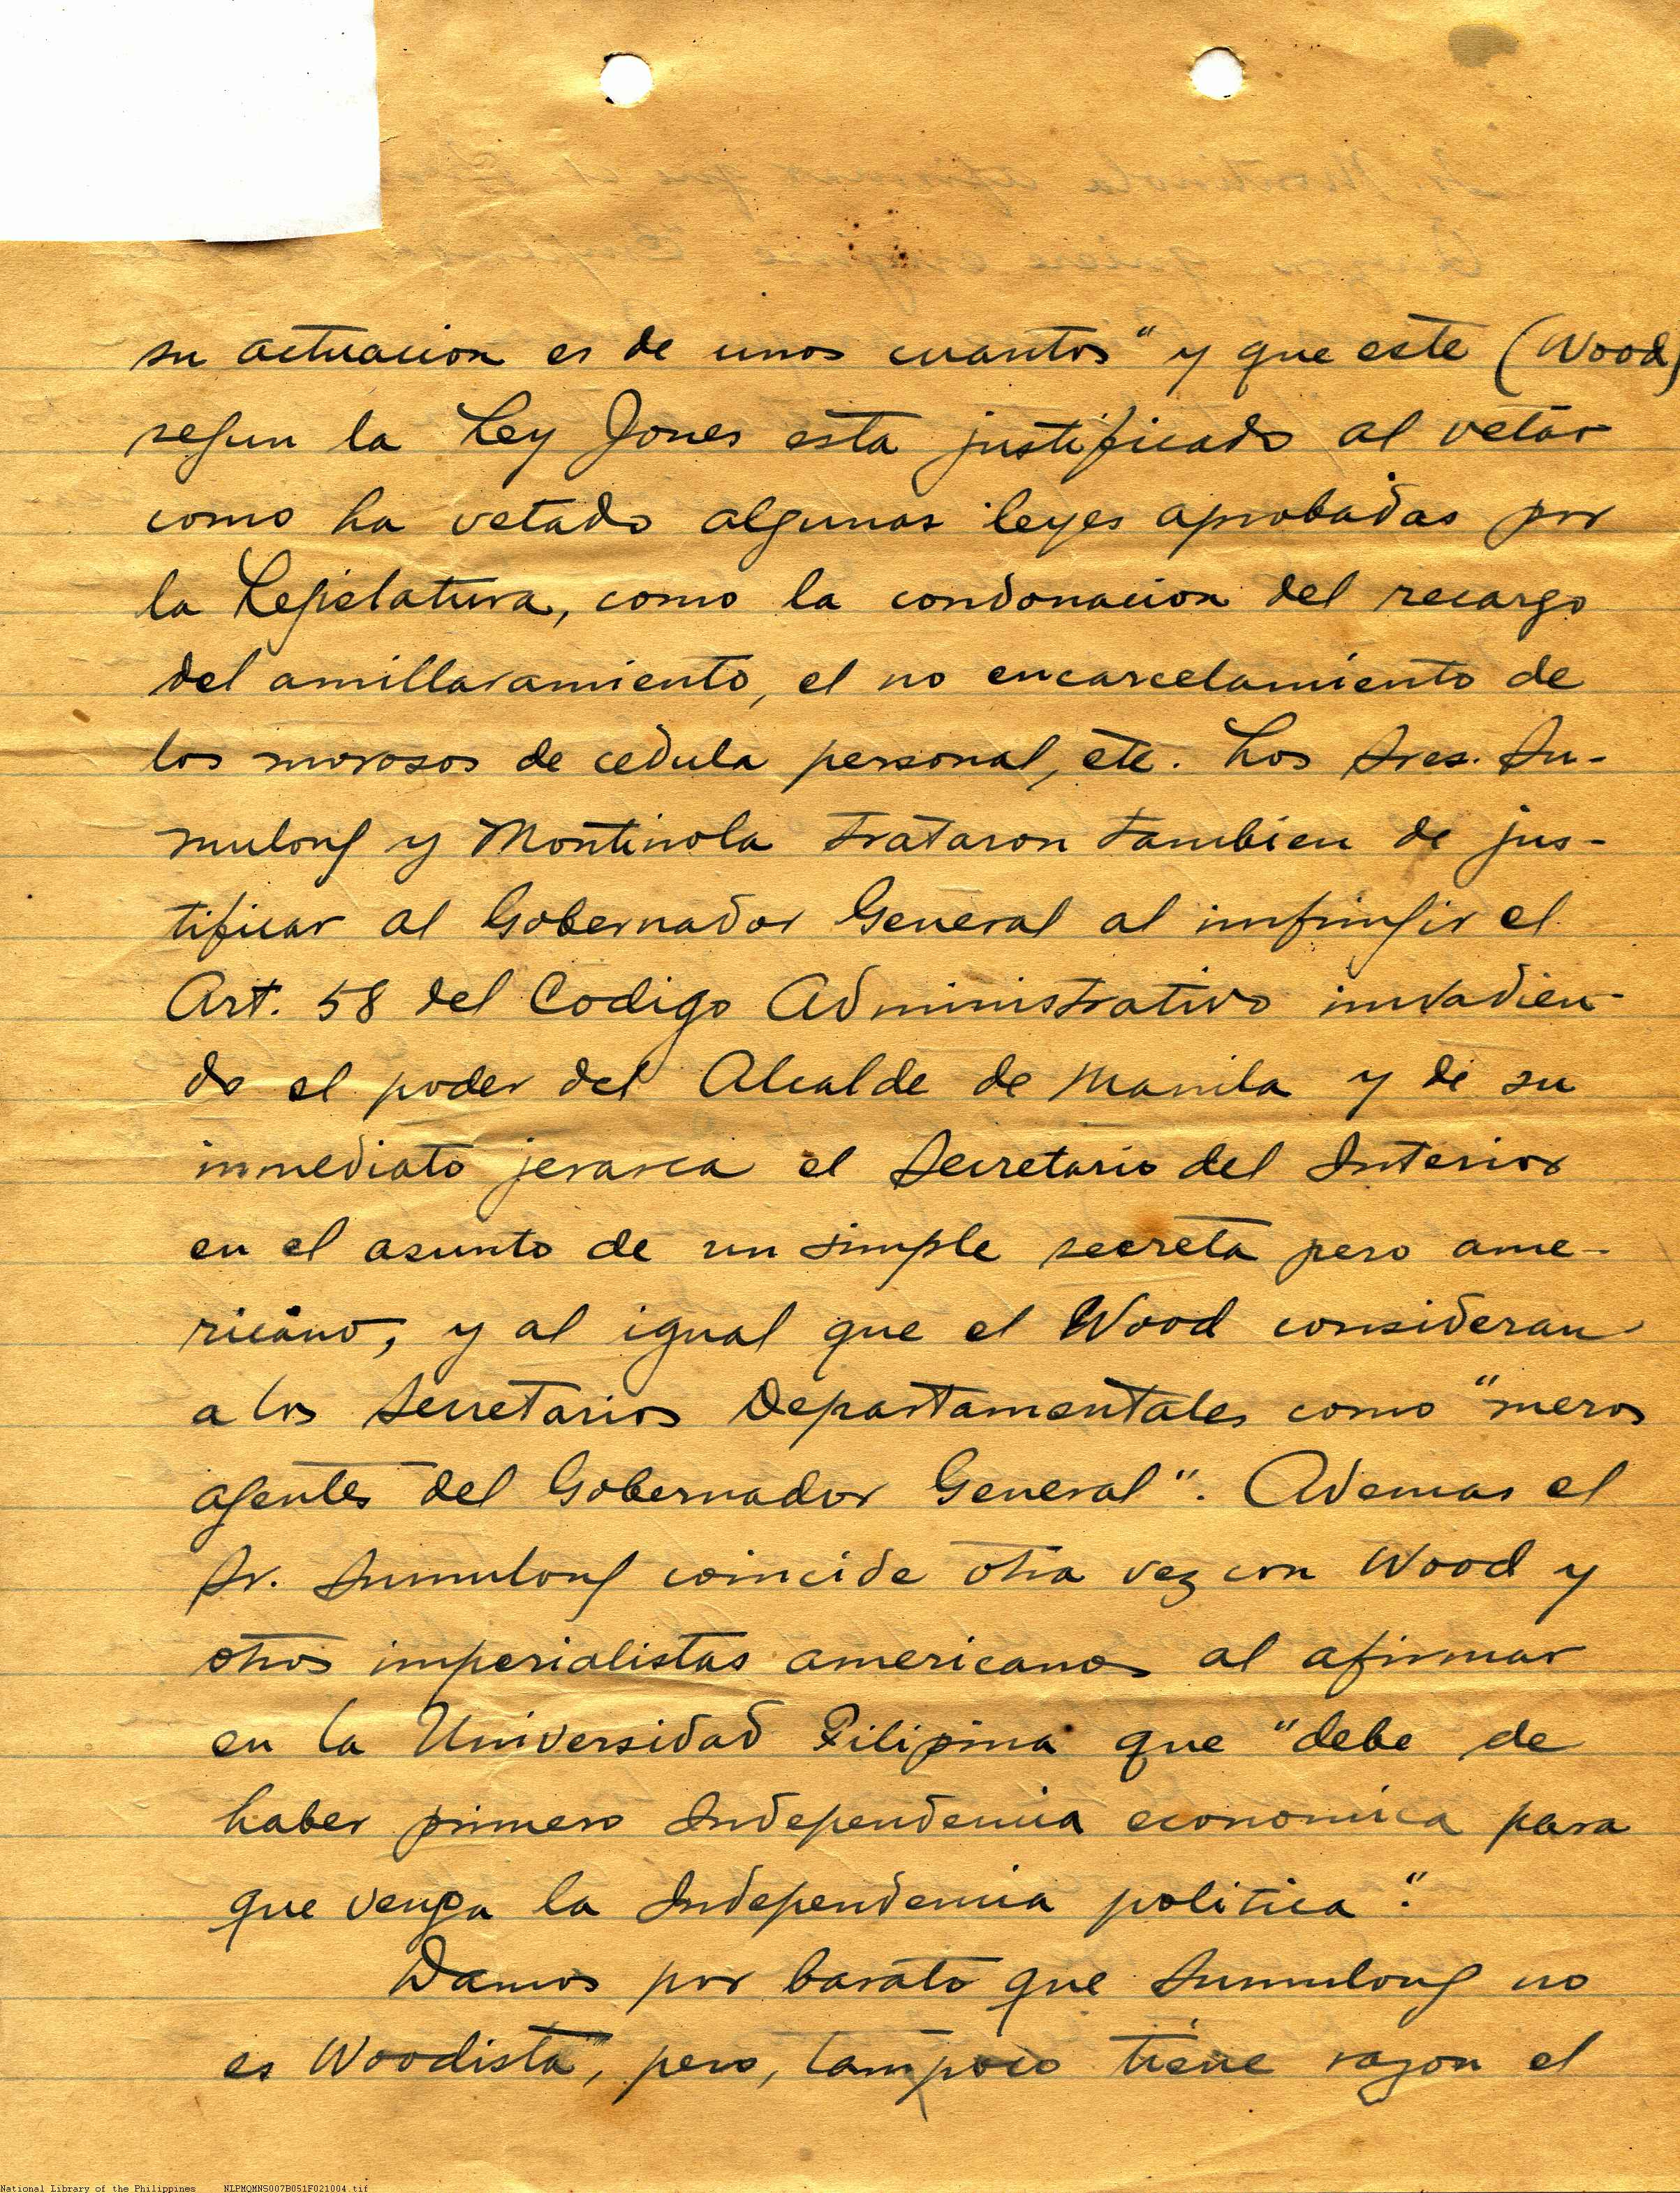 su actuacion es de unos cuantos" y que este (Wood)
segun la Ley Jones esta justificado al vetar
como ha vetado algunas leyes aprobadas por
la Legislatura, como la condonacion del recargo
del amillaramiento, el no encarcelamiento de
los morosos de cedula personal, etc. Los Sres. Su-
mulong y Montinola trataron tambien de jus-
tificar al Gobernador General al imfringir el
Art. 58 del Codigo Administrativo invadien-
do el poder del Alcalde de Manila y de su
inmediato jerarca el Secretario del Interior
en el asunto de un simple secreta pero ame-
ricano, y al igual que el Wood consideran
a los Secretarios Departamentales como "meros
agentes del Gobernador General". Ademas el
Sr. Sumulong coincide otra vez con Wood y
otros imperialistas americanos al afirmar
en la Universidad Filipina que "debe de
haber primero Independencia economica para
que venga la Independencia politica".
Damos por barato que Sumulong no
es Woodista, pero, tampoco tiene razon el
National Library of the Philippines NLPMQMNS007B051F021004.tif